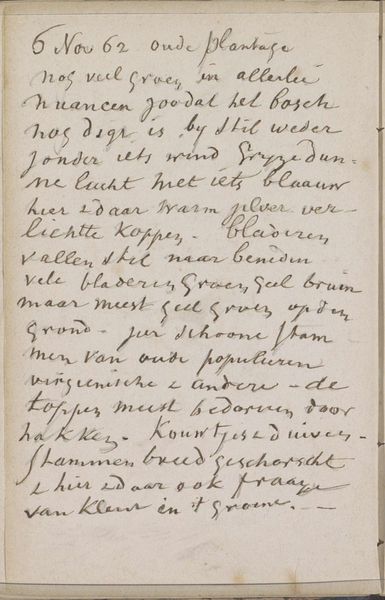 6 Nov 62 oude plantage
nog veel groen in allerlei
nuancen zoodat het bosch
nog digt is by stil weder
zonder iets wind Gryze dun-
ne lucht met iets blaauw
hier & daar warm zilver ver-
lichtte koppen. bladeren
vallen stil naar beneden
vele bladeren groen geel bruin
maar meest geel groen op den
grond - zeer schoone stam
men van oude populieren
virginische & andere - de
toppen meest bedorven door
hakken. Kouwtjes & duiven -
stammen breed geschorscht
& hier & daar ook fraaye
van kleur in 't groene. -